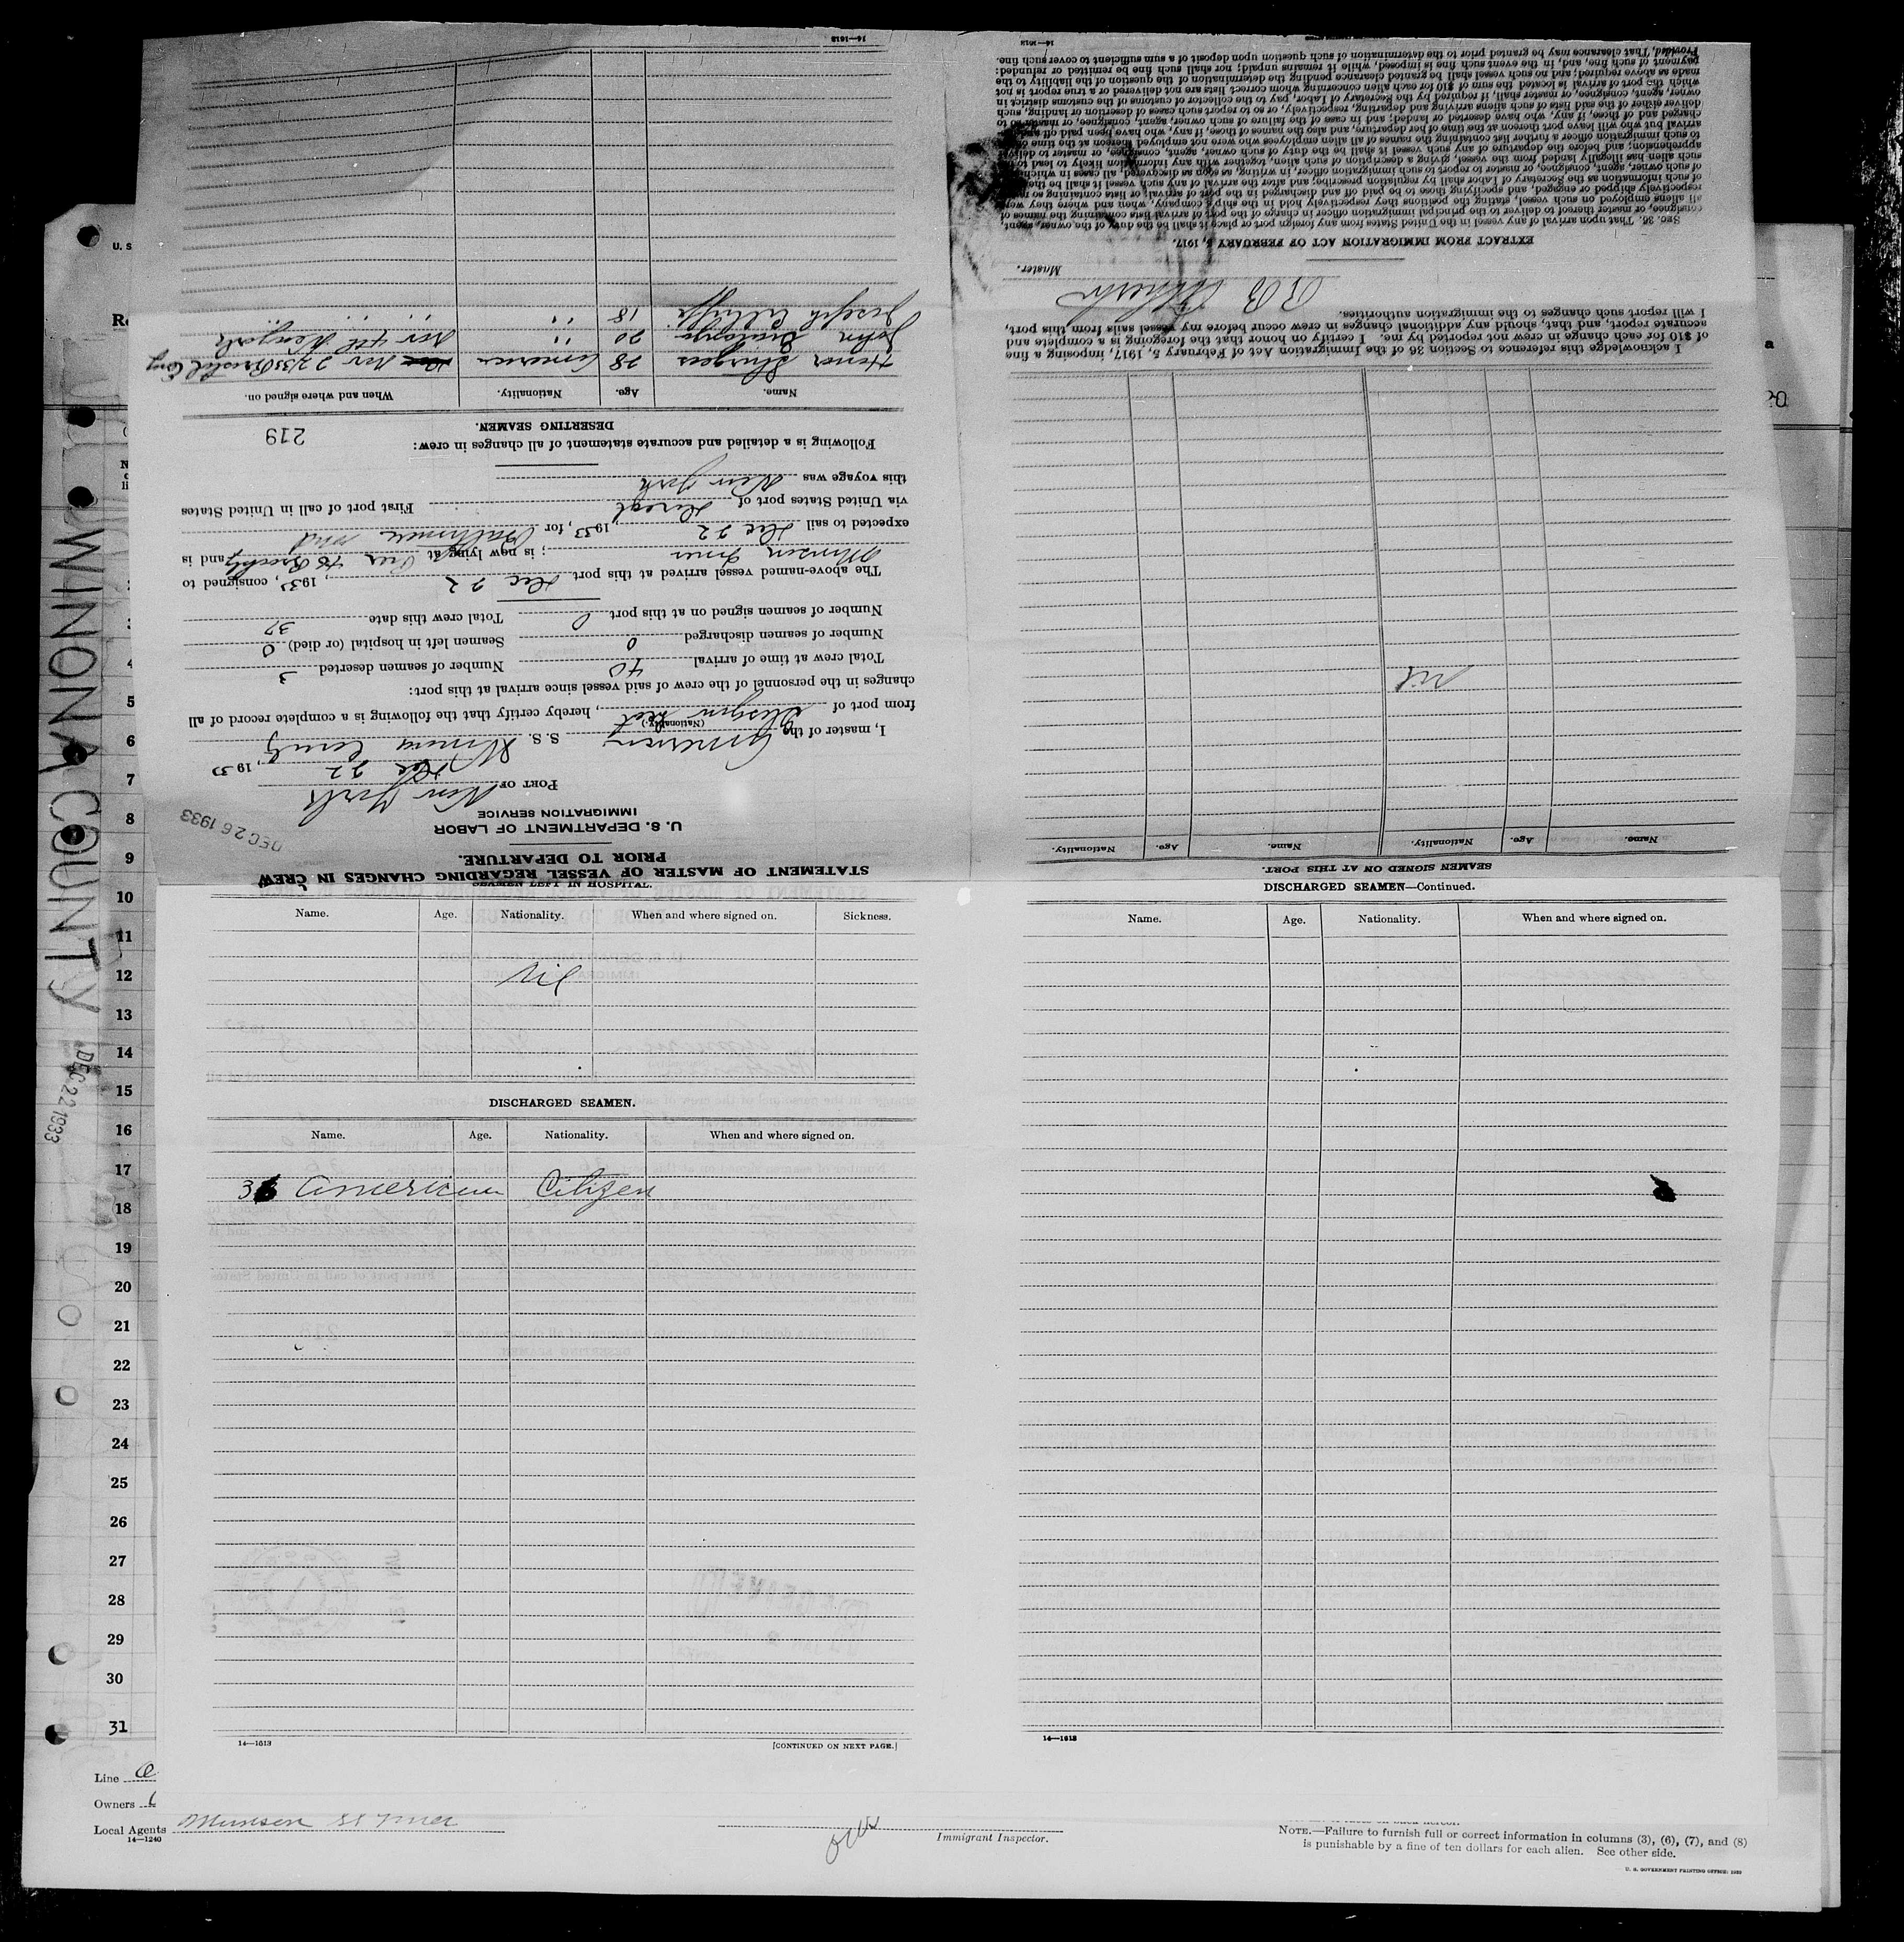 STATEMENT OF MASTER OF VESSEL REGARDING CHANGES IN CREW
PRIOR TO DEPARTURE.
U. S. DEPARTMENT OF LABOR
IMMIGRATION SERVICE
DEC 26 1933
PORT OF New York
Dec 22, 1933
I, master of the American S. S. Winona County,
(Nationality.)
from port of Glasgow Scot, hereby certify that the following is a complete record of all
changes in the personnel of the crew of said vessel since arrival at this port:
Total crew at time of arrival 40 Number of seamen deserted 3
Number of seamen discharged 0 Seamen left in hospital (or died) 0
Number of seamen signed on at this port 0 Total crew this date 37
The above-named vessel arrived at this port Dec 22, 1933, consigned to
Munson Line; is now lying at Pier 48 Brooklyn and is
expected to sail Dec 22 1933, for Baltimore Md
via United States port of Direct First port of call in United States
this voyage was New York
Following is a detailed and accurate statement of all changes in crew:
219
DESERTING SEAMEN.
Name. Age. Nationality. When and where signed on.
28 American Nov 22/33 Bristol Eng
John 20 " Nov 4th New York
Joseph 18 " " "
14—1613
SEAMEN SIGNED ON AT THIS PORT.
Name. Age. Nationality. Name. Age. Nationality.
Nil
I acknowledge this reference to Section 36 of the Immigration Act of February 5, 1917, imposing a fine
of $10 for each change in crew not reported by me. I certify on honor that the foregoing is a complete and
accurate report, and that, should any additional changes in crew occur before my vessel sails from this port,
I will report such changes to the immigration authorities.
Master.
EXTRACT FROM IMMIGRATION ACT OF FEBRUARY 5, 1917.
SEC. 36. That upon arrival of any vessel in the United States from any foreign port or place it shall be the duty of the owner, agent,
consignee, or master thereof to deliver to the principal immigration officer in charge of the port of arrival lists containing the names of
all aliens employed on such vessel, stating the positions they respectively hold in the ship's company, when and where they were
respectively shipped or engaged, and specifying those to be paid off and discharged in the port of arrival; or lists containing so much
of such information as the Secretary of Labor shall by regulation prescribe; and after the arrival of any such vessel it shall be the duty
of such owner, agent, consignee, or master to report to such immigration officer, in writing, as soon as discovered, all cases in which any
such alien has illegally landed from the vessel, giving a description of such alien, together with any information likely to lead to his
apprehension; and before the departure of any such vessel it shall be the duty of such owner, agent, consignee, or master to deliver
to such immigration officer a further list containing the names of all alien employees who were not employed thereon at the time of the
arrival but who will leave port thereon at the time of her departure, and also the names of those, if any, who have been paid off and dis-
charged and of those, if any, who have deserted or landed; and in case of the failure of such owner, agent, consignee, or master so to
deliver either of the said lists of such aliens arriving and departing, respectively, or so to report such cases of desertion or landing, such
owner, agent, consignee, or master shall, if required by the Secretary of Labor, pay to the collector of customs of the customs district in
which the port of arrival is located the sum of $10 for each alien concerning whom correct lists are not delivered or a true report is not
made as above required; and no such vessel shall be granted clearance pending the determination of the question of the liability to the
payment of such fine, and, in the event such fine is imposed, while it remains unpaid; nor shall such fine be remitted or refunded:
Provided, That clearance may be granted prior to the determination of such question upon deposit of a sum sufficient to cover such fine.
14—1613
SEAMEN LEFT IN HOSPITAL.
Name. Age. Nationality. When and where signed on. Sickness.
Nil
DISCHARGED SEAMEN.
Name. Age. Nationality. When and where signed on.
American Citizen
14—1613
[CONTINUED ON NEXT PAGE.]
DISCHARGED SEAMEN—Continued.
Name. Age. Nationality. When and where signed on.
14—1613
WINONA COUNTY
DEC 22 1933
U. S
4
5
6
7
8
9
10
11
12
13
14
15
16
17
18
19
20
21
22
23
24
25
26
27
28
29
30
31
Line
Owners
Local Agents Munson SS Line
14—1240
Immigrant Inspector.
NOTE.—Failure to furnish full or correct information in columns (3), (6), (7), and (8)
is punishable by a fine of ten dollars for each alien. See other side.
U. S. GOVERNMENT PRINTING OFFICE: